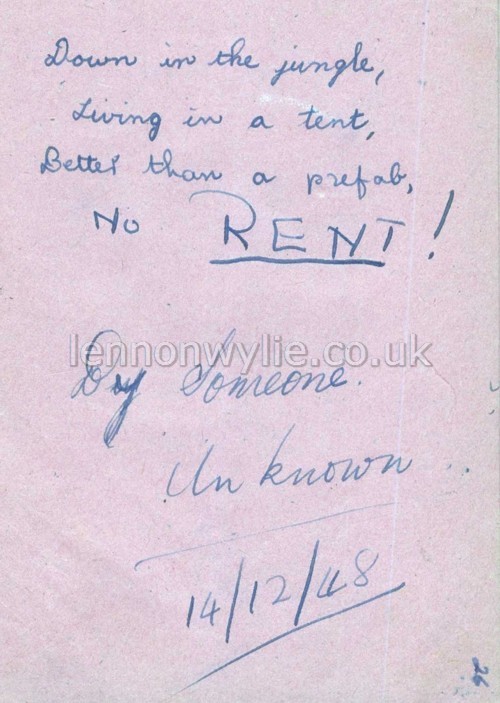 Down in the jungle,
Living in a tent,
Better than a prefab,
No RENT!
lennonwylie.co.uk
By Someone.
Unknown
14/12/48
26